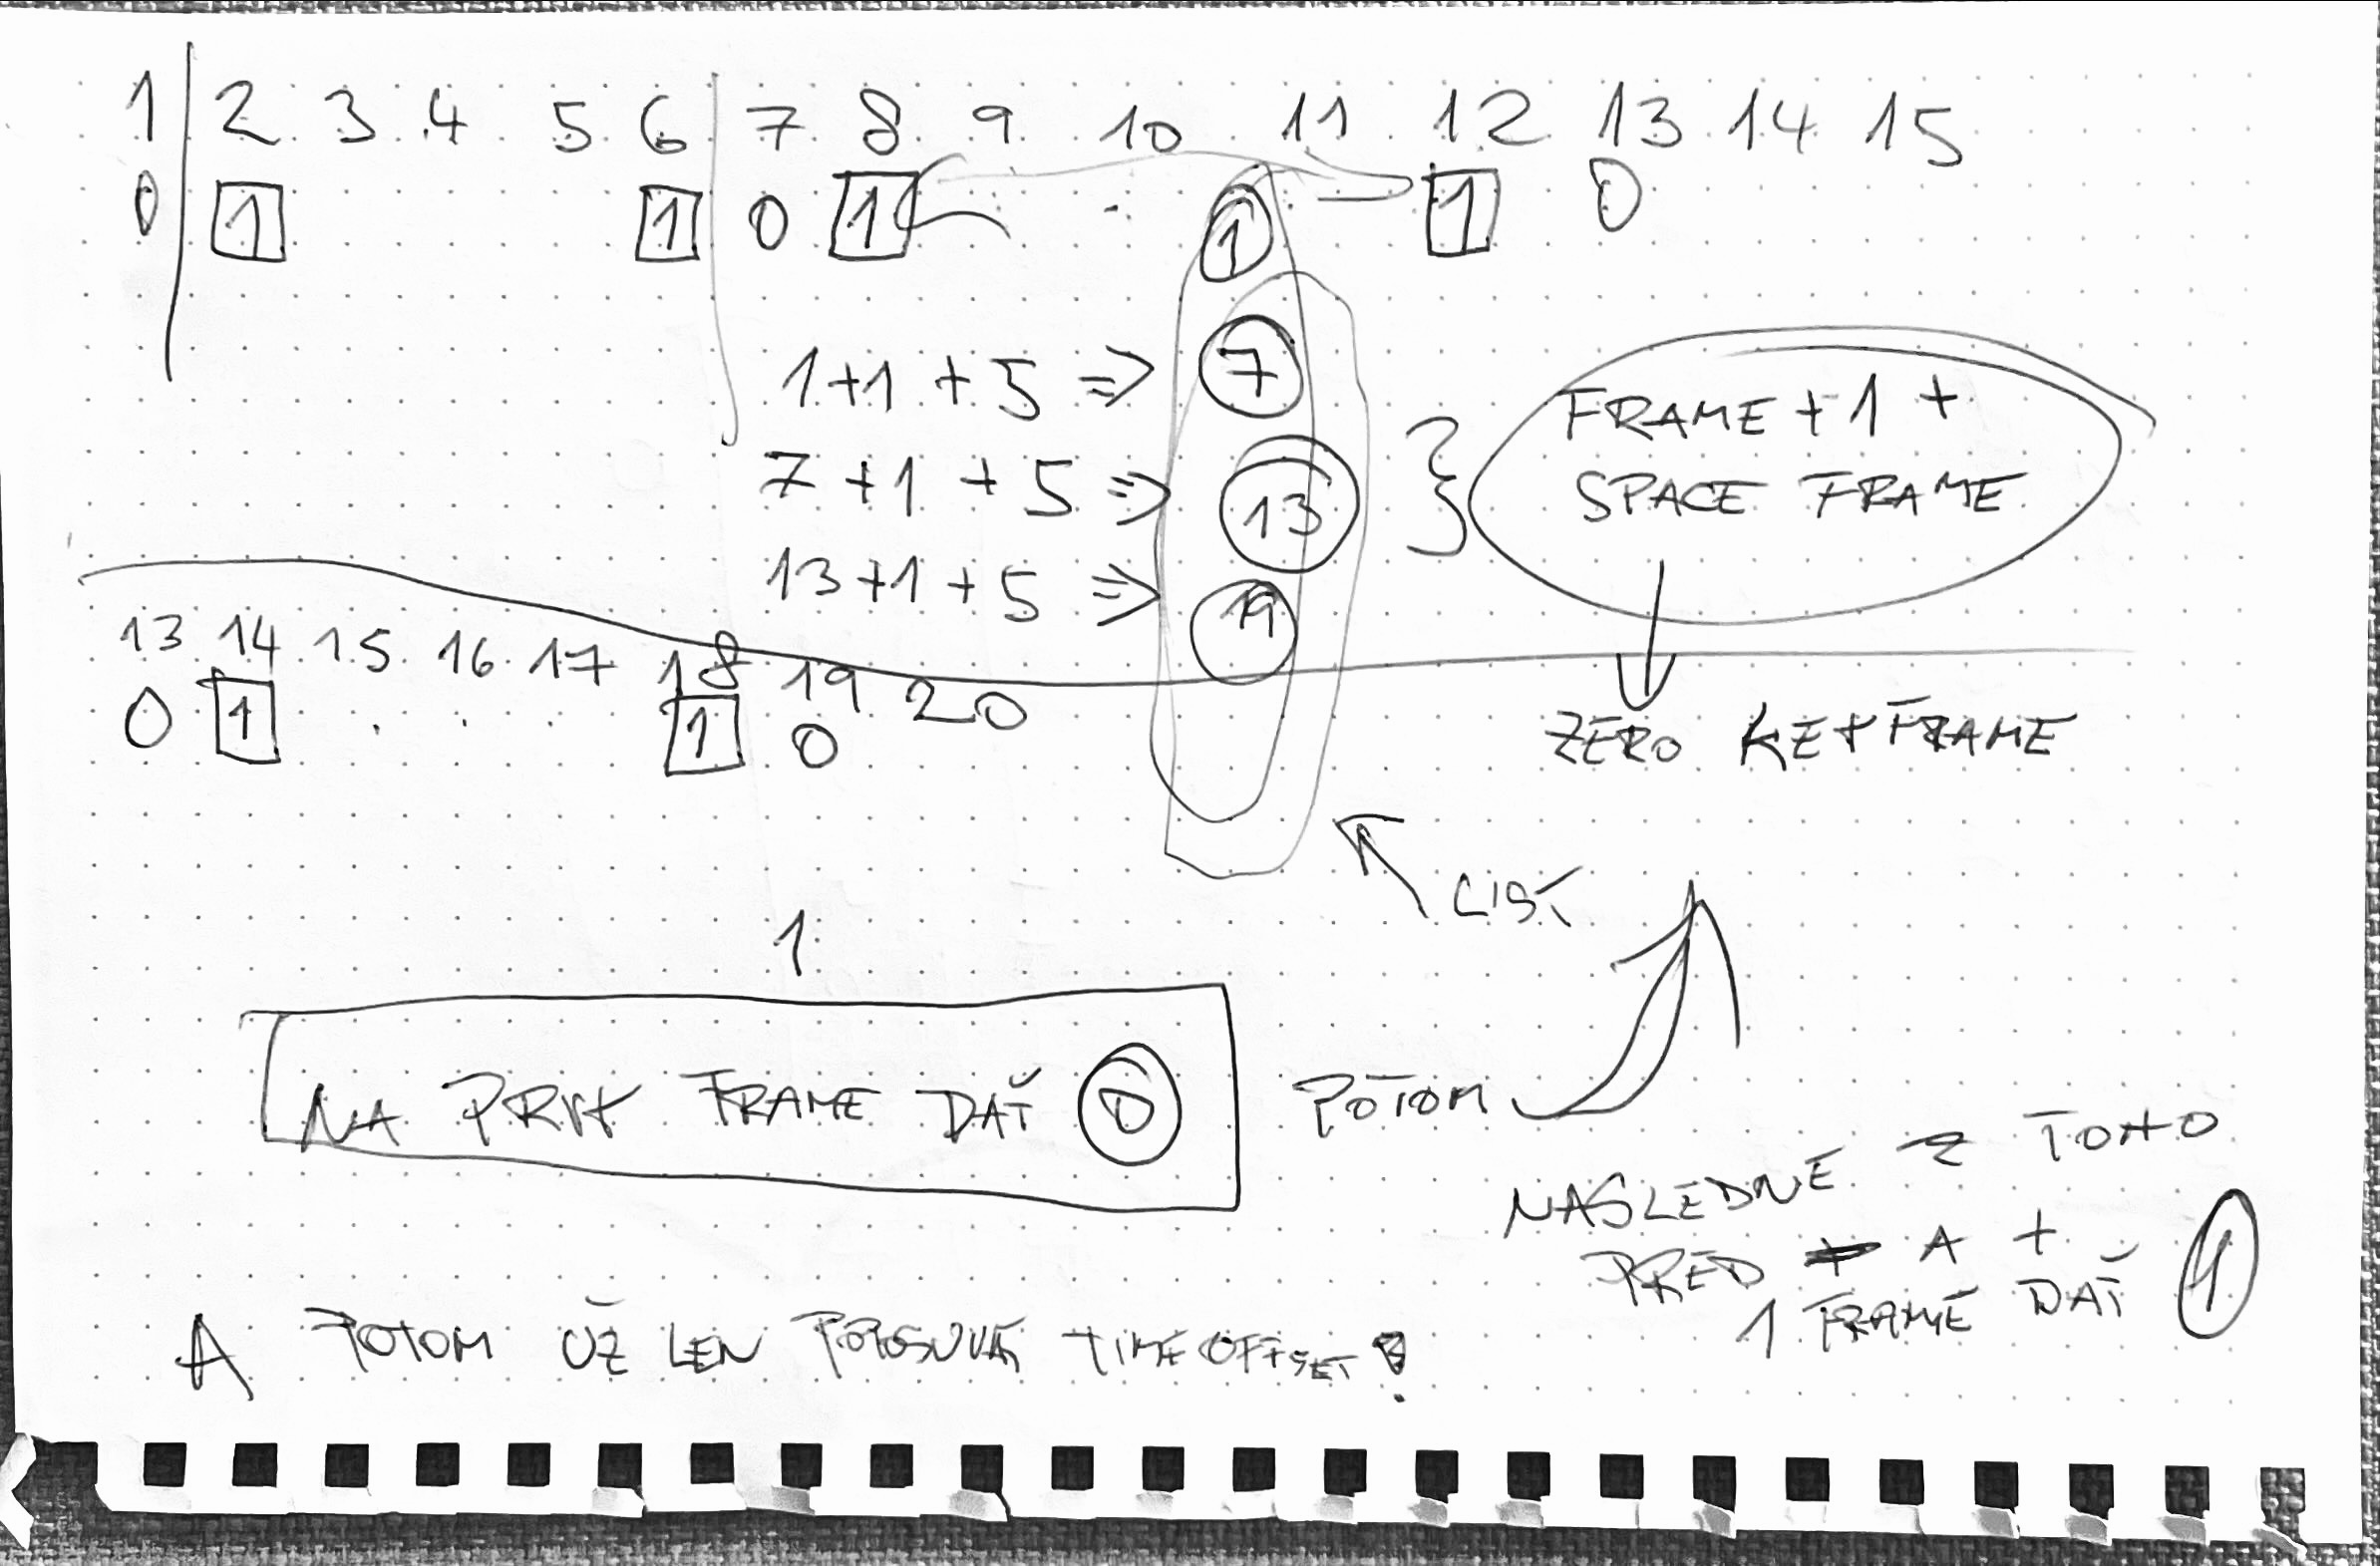 1 2 3 4 5 6 7 8 9 10 11 12 13 14 15
0 1 1 0 1 1 1 0
1+1+5 => 7
7+1+5 => 13
13+1+5 => 19
FRAME+1+
SPACE FRAME
ZERO KEYFRAME
13 14 15 16 17 18 19 20
0 1 1 0
LIST
1
NA PRVY FRAME DAŤ 0
POTOM
NÁSLEDNE Z TOHO
PRED A +
1 FRAME DAŤ 1
A POTOM UŽ LEN TIME OFFSET!